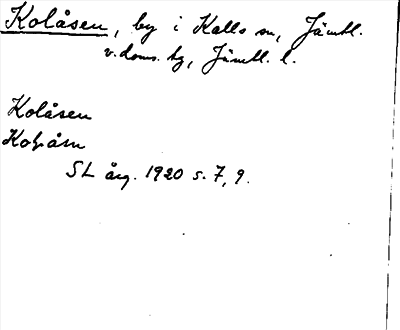 Kolåsen, by i Kalls sn, Jämtl.
v. doms. hg, Jämtl. l.
Kolåsen
Kolåsn
SL årg. 1920 s. 7, 9.